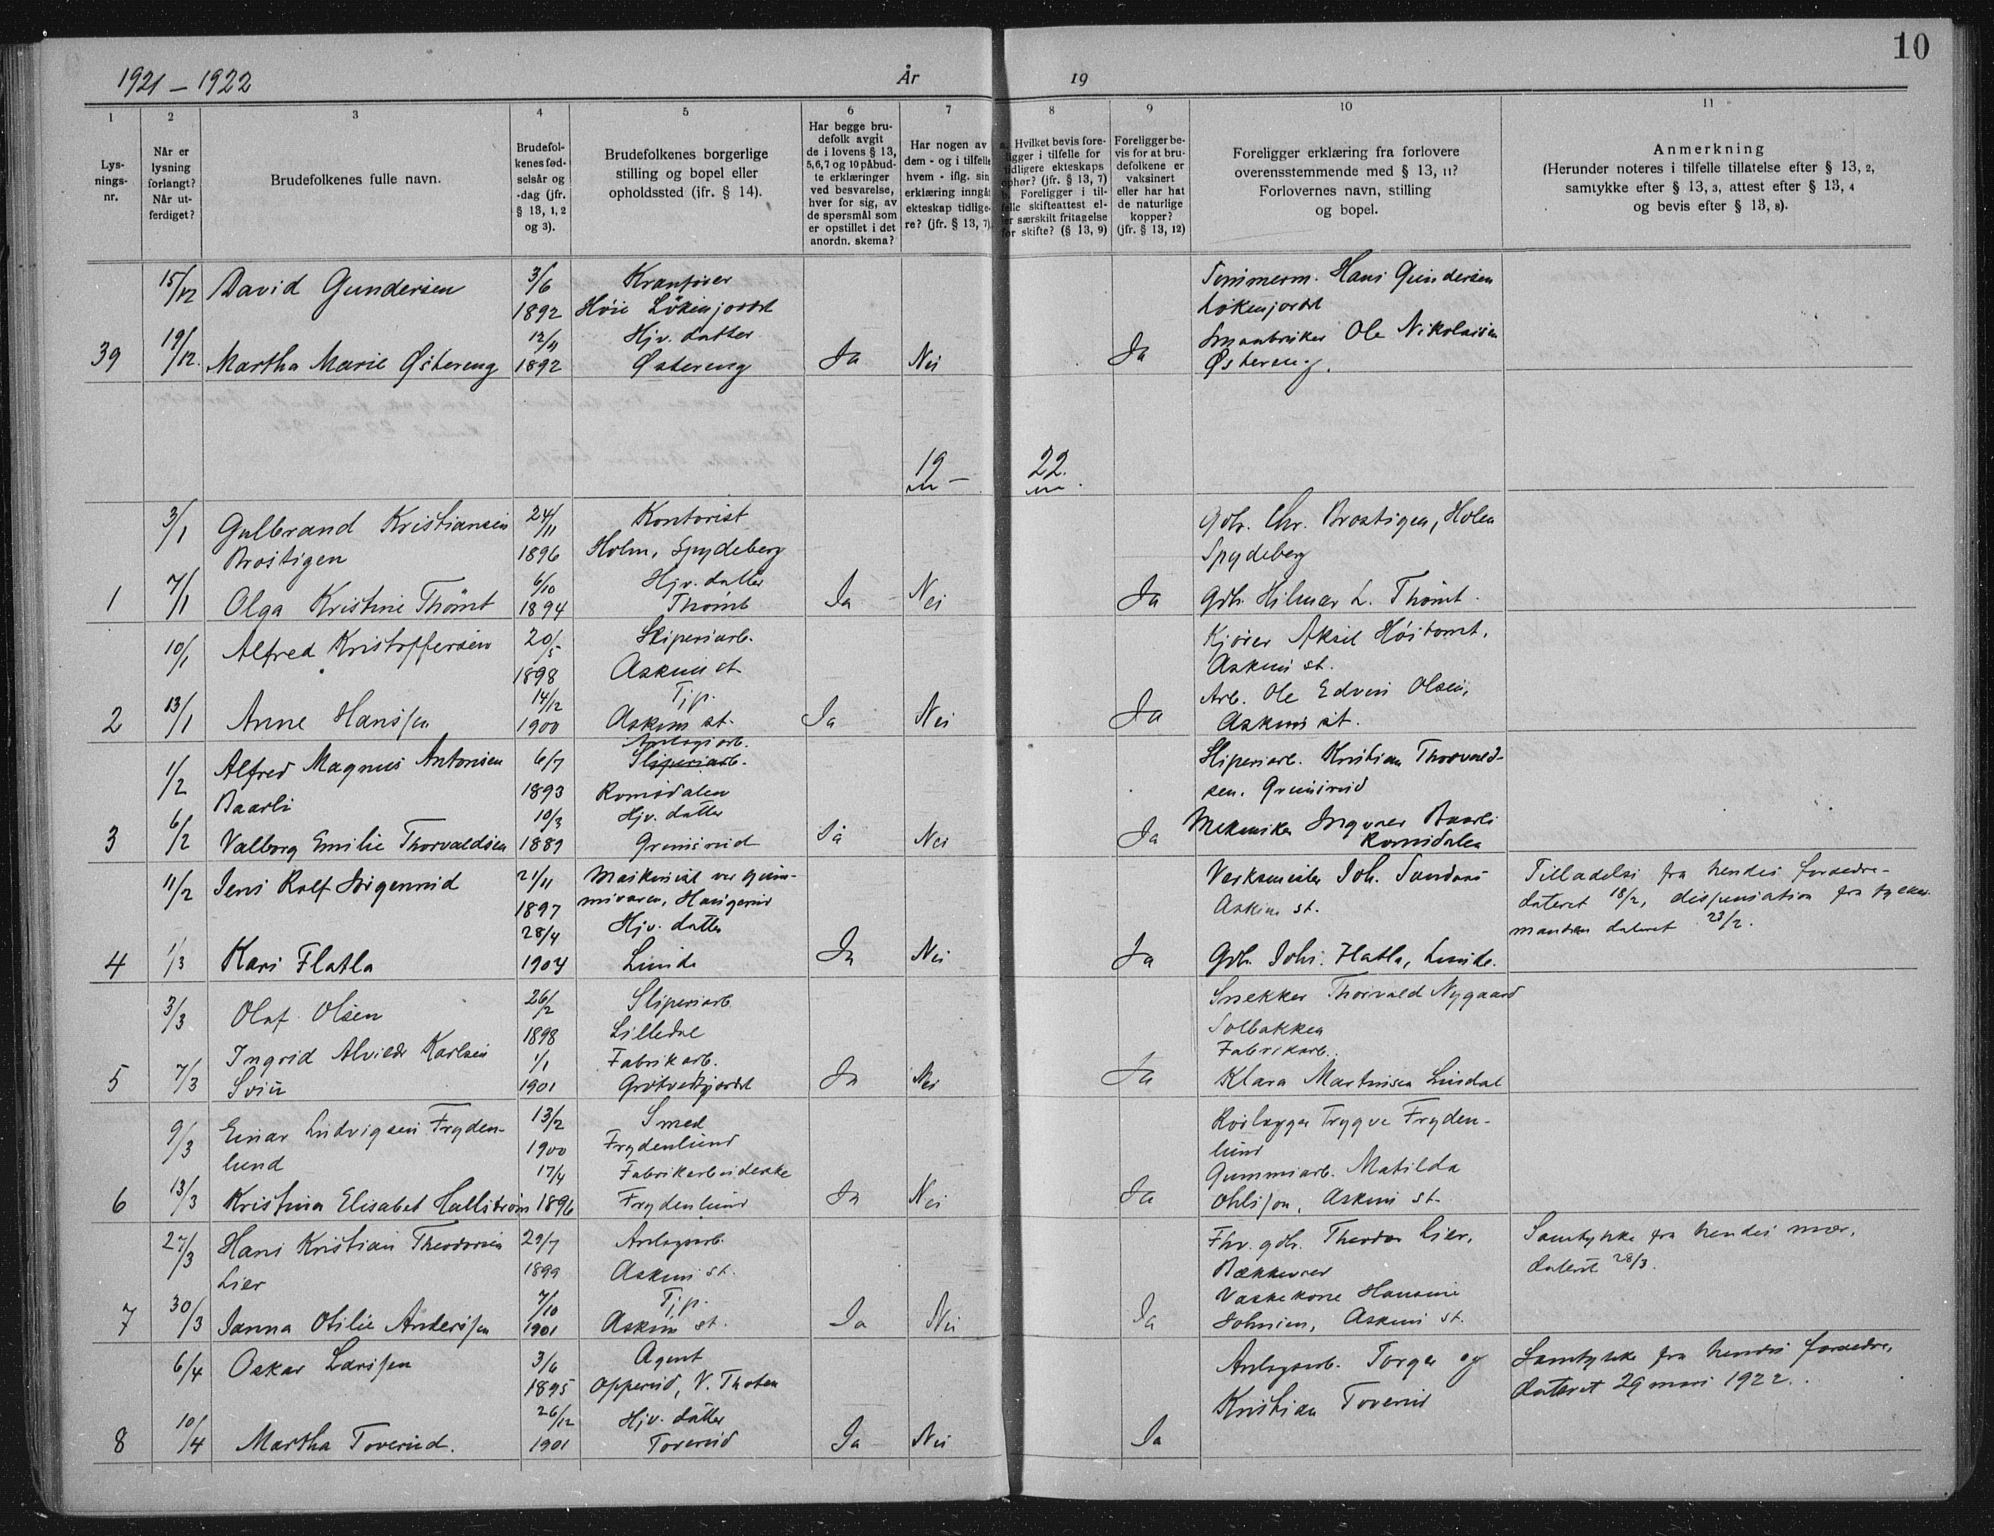 10
1921 - 1922
År
19
1 2 3 4 5 6 7 8 9 10 11
Lys-
nings-
nr.
Når er
lysning
forlangt?
Når ut-
ferdiget?
Brudefolkenes fulle navn.
Brudefol-
kenes fød-
selsår og
-dag (jfr.
§ 13, 1, 2
og 3).
Brudefolkenes borgerlige
stilling og bopel eller
opholdssted (ifr. § 14).
Har begge bru-
defolk avgit
de i lovens § 13,
5,6,7 og 10 påbud-
te erklæringer
ved besvarelse,
hver for sig, av
de spørsmål som
er opstillet i det
anordn. skema?
Har nogen av
dem - og i tilfelle
hvem - iflg. sin
erklæring inngåt
ekteskap tidlige-
re? (jfr. § 13, 7).
a. Hvilket bevis fore-
ligger i tilfelle for
tidligere ekteskaps
ophør? (jfr. § 13, 7)
b. Foreligger i til-
felle skifteattest el-
ler særskilt fritagelse
for skifte? (§ 13, 9)
Foreligger be-
vis for at bru-
defolkene er
vaksinert
eller har hat
de naturlige
kopper?
(jfr. § 13, 12)
Foreligger erklæring fra forlovere
overensstemmende med § 13, 11?
Forlovernes navn, stilling
og bopel.
Anmerkning
(Herunder noteres i tilfelle tillatelse efter § 13, 2,
samtykke efter § 13, 3, attest efter § 13, 4
og bevis efter § 13, 8).
15/12 David Gundersen 3/6 Kranfører Tømmerm. Hans Gundersen
1892 Høie Løkenjordet Løkenjordet
19/12 12/11 Hjv. datter Smaabruker Ole Nikolaisen
39 Martha Marie Østereng 1892 Østereng Ja Nei Ja Østereng.
19 - 22.
3/1 Gulbrand Kristiansen 24/11 Kontorist Gdb. Chr. Brostigen, Holm
Brostigen 1896 Holm, Spydeberg Spydeberg
7/1 6/10 Hjv. datter
1 Olga Kristine Thømt 1894 Thømt Ja Nei Ja Gdb. Hilmar L. Thømt.
10/1 Alfred Kristoffersen 20/5 Sliperiarb. Kjører Aksel Høitomt,
1898 Askim st. Askim st.
13/1 14/12 Tjp. Arb. Ole Edvin Olsen,
2 Anne Hansen 1900 Askim st. Ja Nei Ja Askim st.
Anlegsarb.
1/2 Alfred Magnus Antonsen 6/7 Sliperiarb. Sliperiarb. Kristian Thorvald-
Baarli 1893 Romsdalen sen. Grimsrud
6/2 10/3 Hjv. datter Mekaniker Ingvar Baarli
3 Valborg Emilie Thorvaldsen 1889 Grimsrud Ja Nei Ja Romsdalen
11/2 Jens Rolf 21/11 Maskinist ved gum- Verksmester Joh. Sandaas Tilladelse fra hendes foreldre
1897 mivaren, Askim st. dateret 18/2, dispensation fra fylkes-
28/4 Hjv. datter manden dateret 23/2.
4 1/3 Kari Flatla 1904 Lunde Ja Nei Ja Gdb. Johs. Flatla, Lunde.
3/3 Olaf Olsen 26/2 Sliperiarb. Snekker Thorvald Nygaard
1898 Lilledal Solbakken
Ingrid Alvilde Karlsen 1/1 Fabrikarb. Fabrikarb.
5 7/3 1901 Grøtvedtjordet Ja Nei Ja Klara Martinsen Lindal
9/3 Einar Ludvigsen Fryden- 13/2 Smed Rørlegger Trygve Fryden-
lund 1900 Frydenlund lund
17/4 Fabrikarbeiderske Gummiarb. Matilda
6 13/3 Kristina Elisabet Hallstrøm 1896 Frydenlund Ja Nei Ja Ohlsson, Askim st.
27/3 Hans Kristian Theodorsen 29/7 Anlegsarb. Fhv. gdb. Theodor Lier, Samtykke fra hendes mor,
Lier 1899 Askim st. Bækkevar dateret 28/3.
30/3 7/10 Tjp. Vaskekone Hansine
7 Janna Otilie Andersen 1901 Askim st. Ja Nei Ja Johnsen, Askim st.
6/4 Oskar Larsen 3/6 Agent Anlegsarb. Torger og Samtykke fra hendes foreldre,
1895 Opperud, V. Thoten Kristian Toverud dateret 29 mars 1922.
10/4 26/12 Hjv. datter
8 Martha Toverud. 1901 Toverud Ja Nei Ja